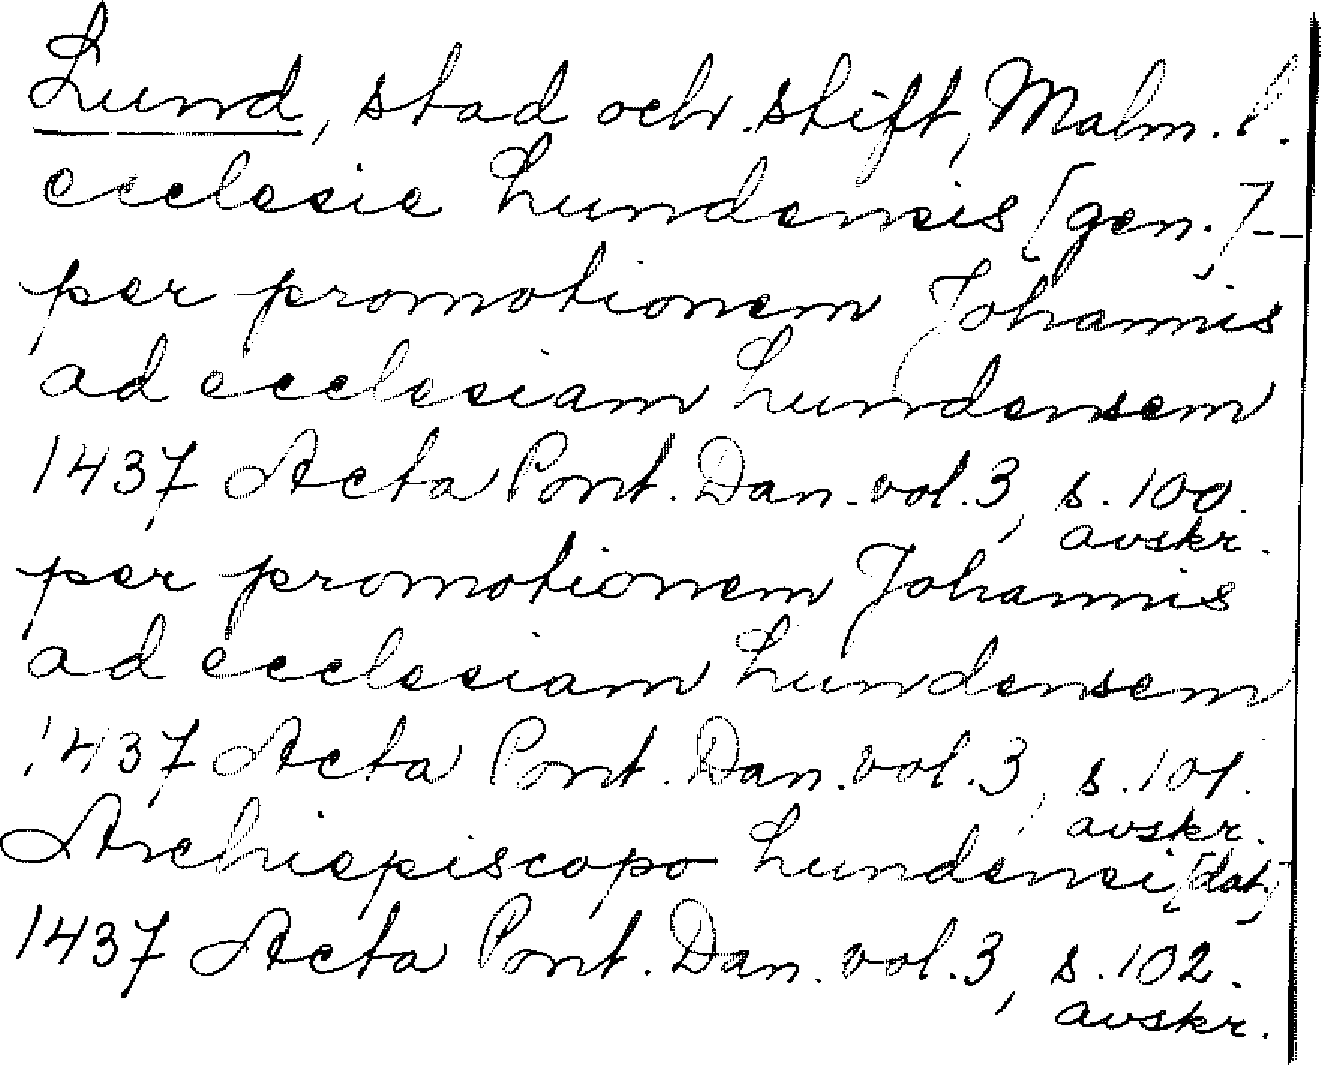 Lund, stad och stift, Malm. l.
ecclesie Lundensis [gen.] —
per promotionem Johannis
ad ecclesiam Lundensem
1437 Acta Pont. Dan. vol. 3, s. 100.
avskr.
per promotionem Johannis
ad ecclesiam Lundensem
1437 Acta Pont. Dan. vol. 3, s. 101.
avskr.
Archiepiscopo Lundensi [dat]
1437 Acta Pont. Dan. vol. 3, s. 102.
avskr.